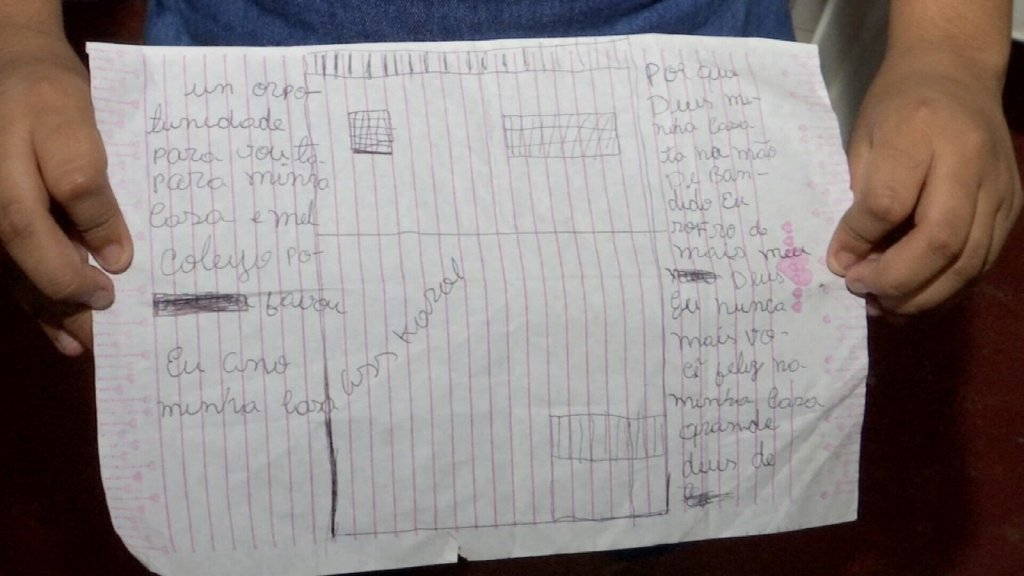 un orpo-
tunidade
para vouta
para minha
casa e meu
colejo po-
favou
Eu amo
minha casa
Por que
Deus mi-
nha casa
ta na mão
De Ban-
dido Eu
sofro de
mais meu
Deus
Eu nunca
mais vo-
cê feliz na
minha casa
grande
deus de